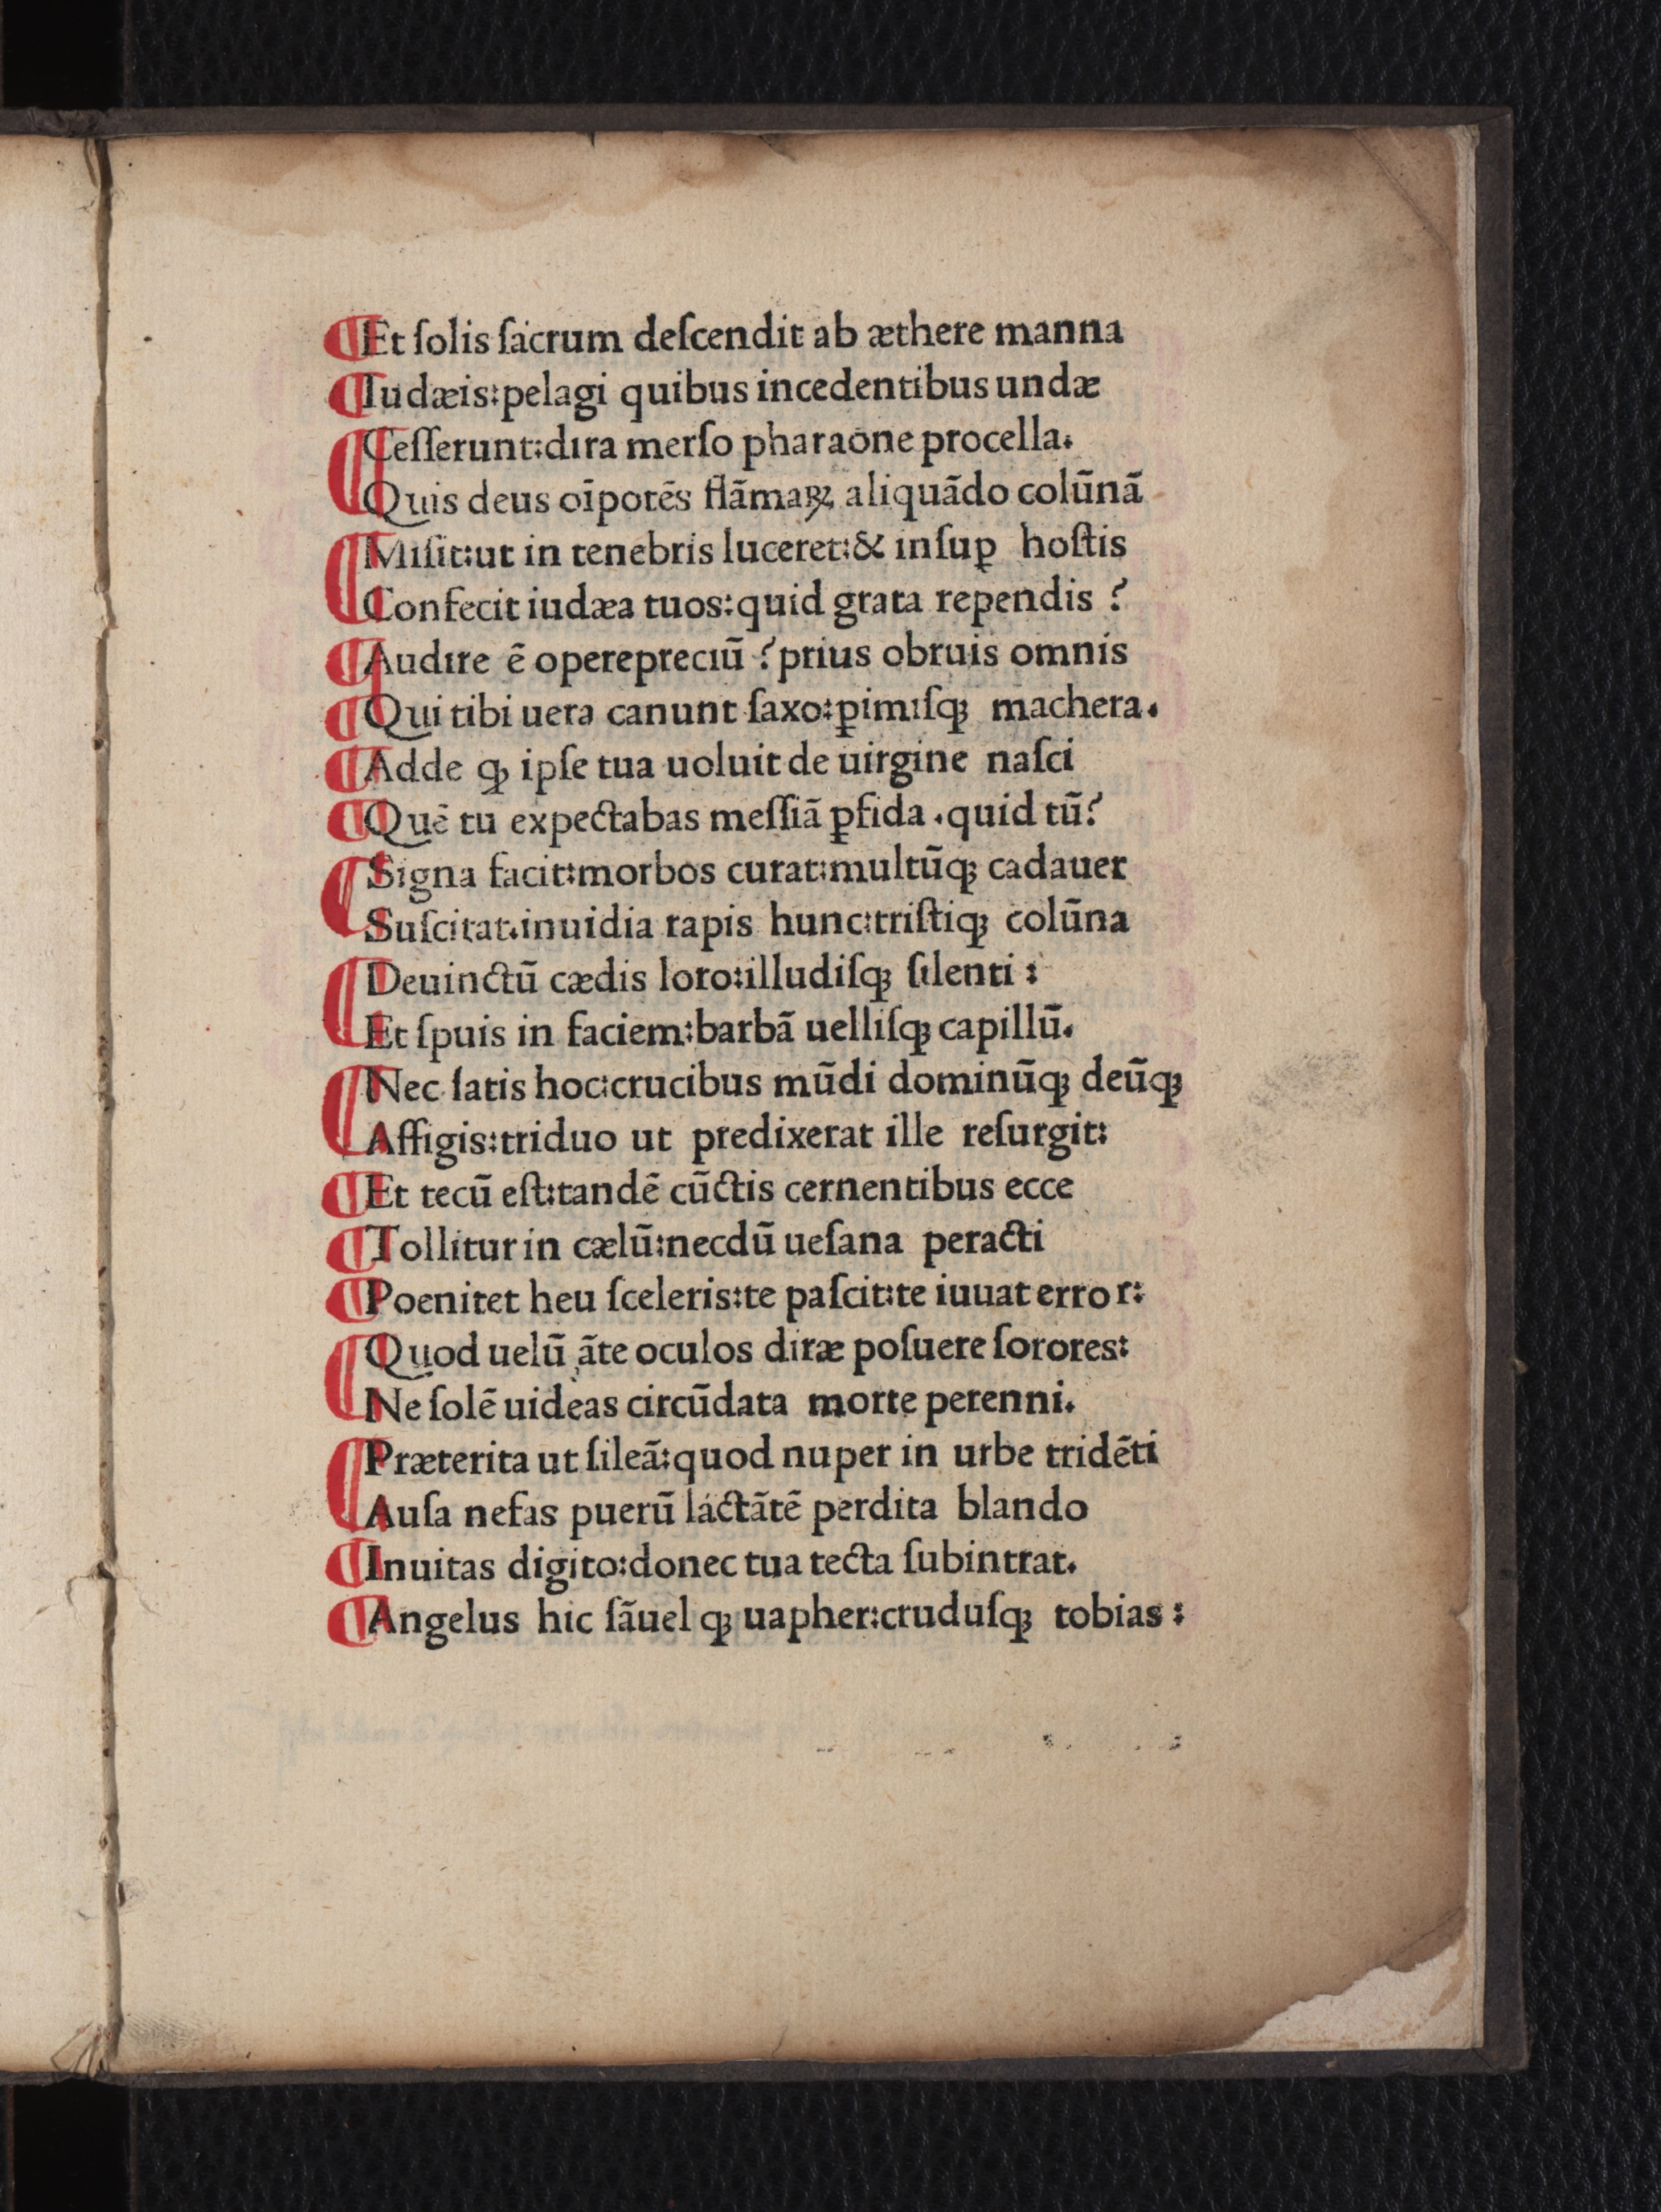 Et ſolis ſacrum deſcendit ab æthere manna
Iudæis:pelagi quibus incedentibus undæ
Ceſſerunt:dira merſo pharaone procella.
Quis deus oīpotēs flāmaꝝ aliquādo colūnā
Miſit:ut in tenebris luceret:& inſuꝑ hoſtis
Confecit iudæa tuos:quid grata rependis ?
Audire ē operepreciū ?prius obruis omnis
Qui tibi uera canunt ſaxo:ꝑimiſqꝫ machera.
Adde ꝙ ipſe tua uoluit de uirgine naſci
Quē tu expectabas meſſiā ꝑfida .quid tū?
Signa facit:morbos curat:multūqꝫ cadauer
Suſcitat.inuidia rapis hunc:triſtiqꝫ colūna
Deuinctū cædis loro:illudiſqꝫ ſilenti :
Et ſpuis in faciem:barbā uelliſqꝫ capillū.
Nec ſatis hoc:crucibus mūdi dominūqꝫ deūqꝫ
Affigis:triduo ut predixerat ille reſurgit:
Et tecū eſt:tandē cūctis cernentibus ecce
Tollitur in cælū:necdū ueſana peracti
Poenitet heu ſceleris:te paſcit:te iuuat error:
Quod uelū āte oculos diræ poſuere ſorores:
Ne ſolē uideas circūdata morte perenni.
Præterita ut ſileā:quod nuper in urbe tridēti
Auſa nefas puerū láctātē perdita blando
Inuitas digito:donec tua tecta ſubintrat.
Angelus hic ſāuel qꝫ uapher:cruduſqꝫ tobias :